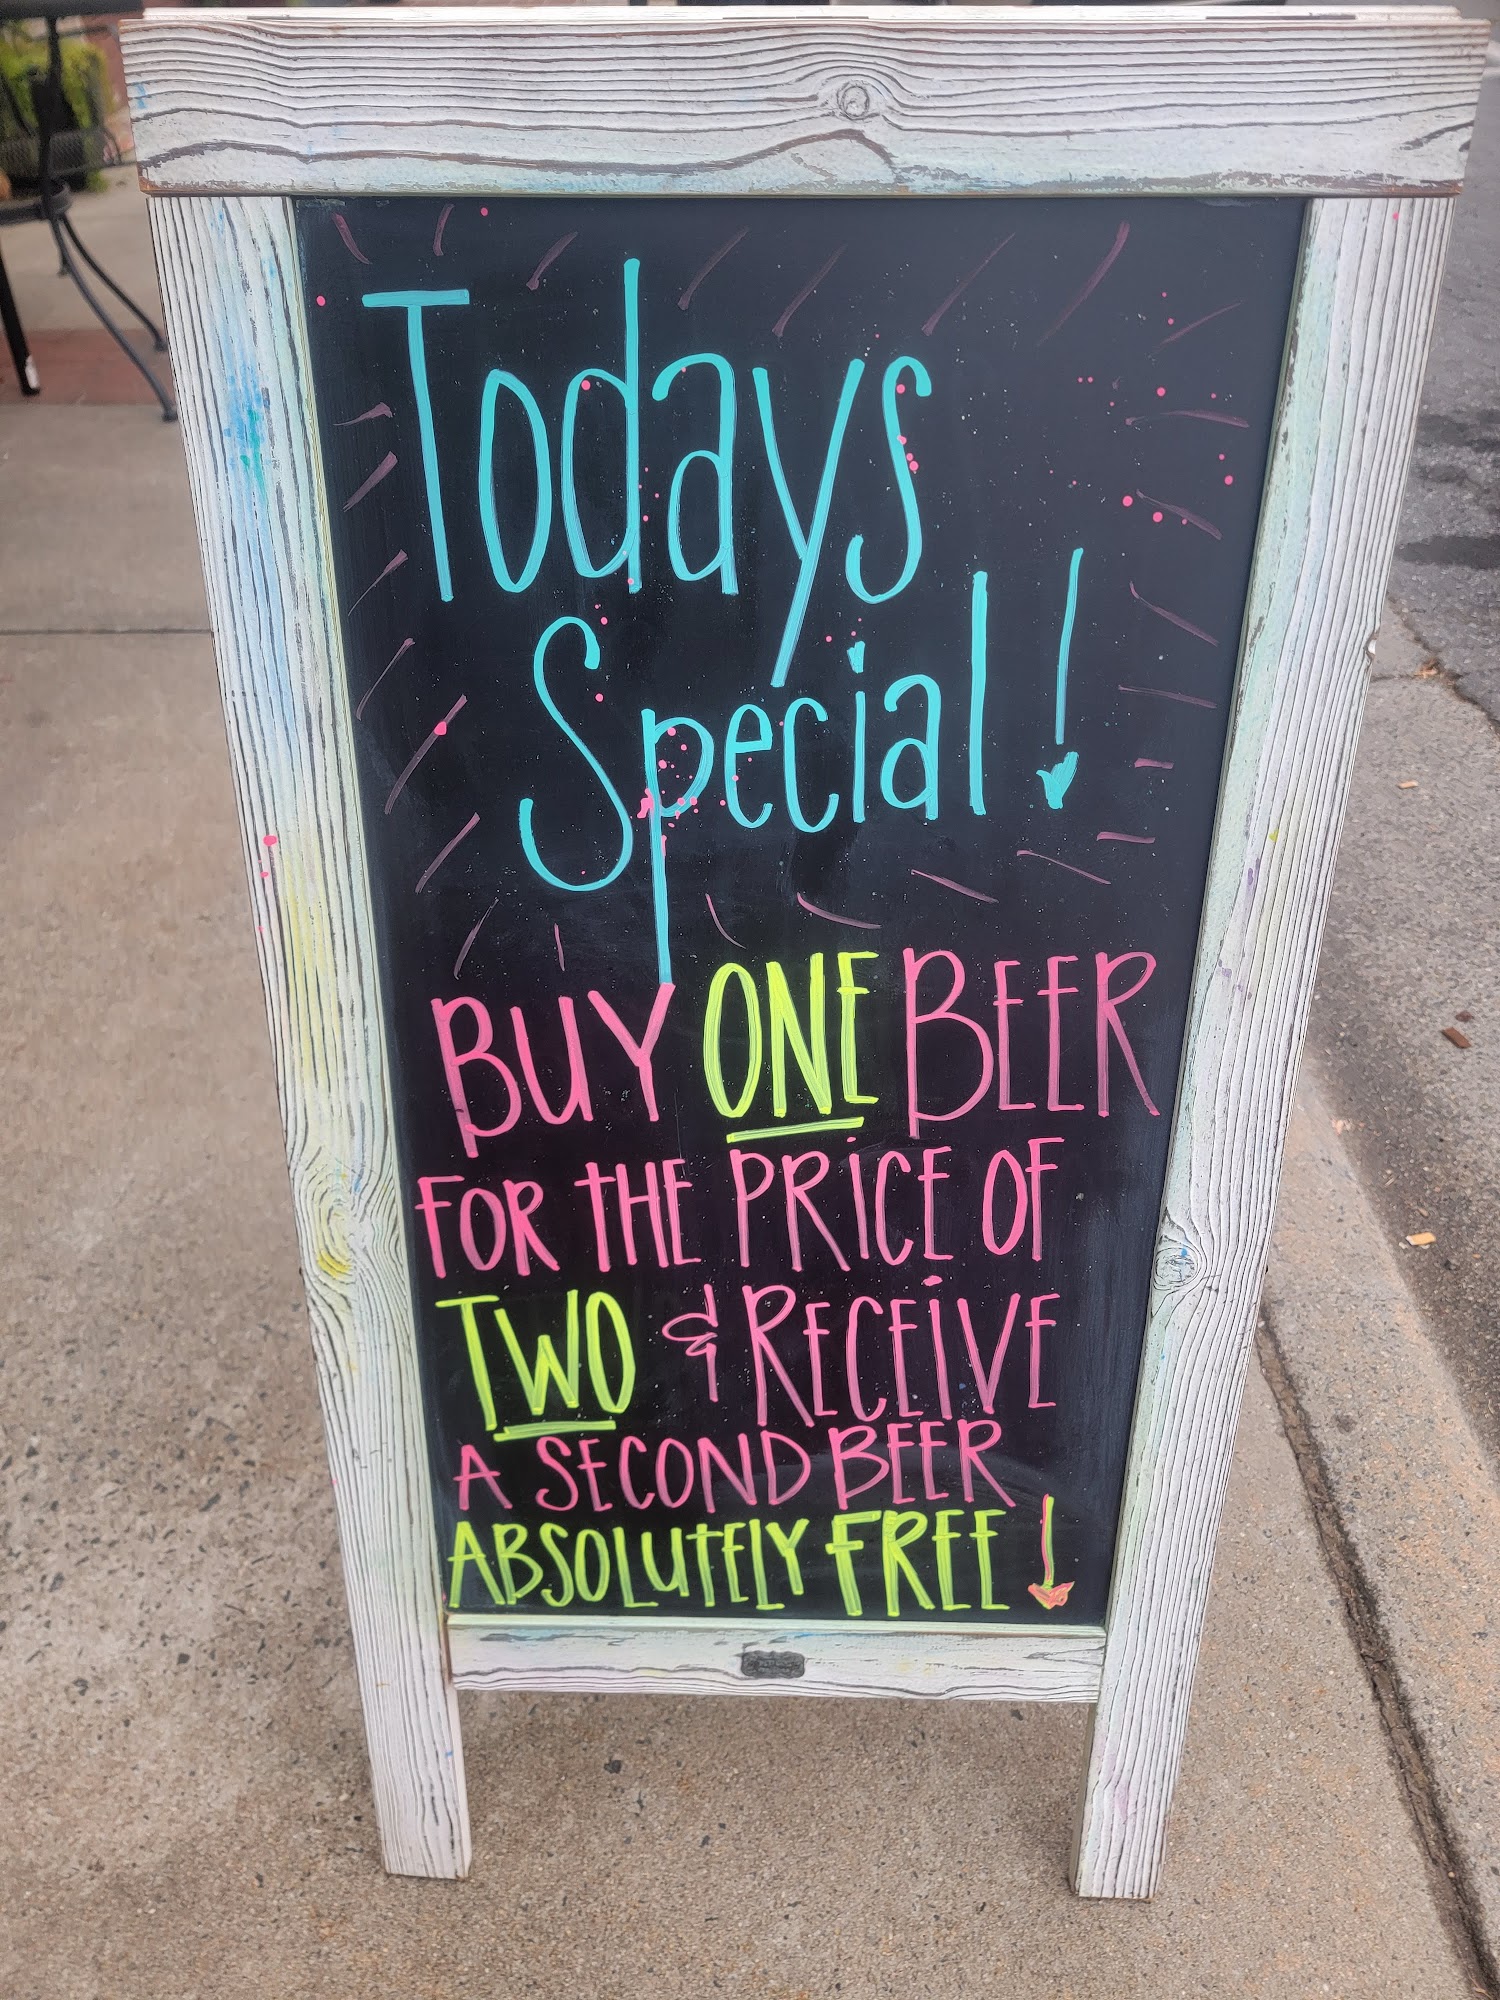 Todays
Special!
BUY ONE BEER
FOR THE PRICE OF
TWO & RECEIVE
A SECOND BEER
ABSOLUTELY FREE!